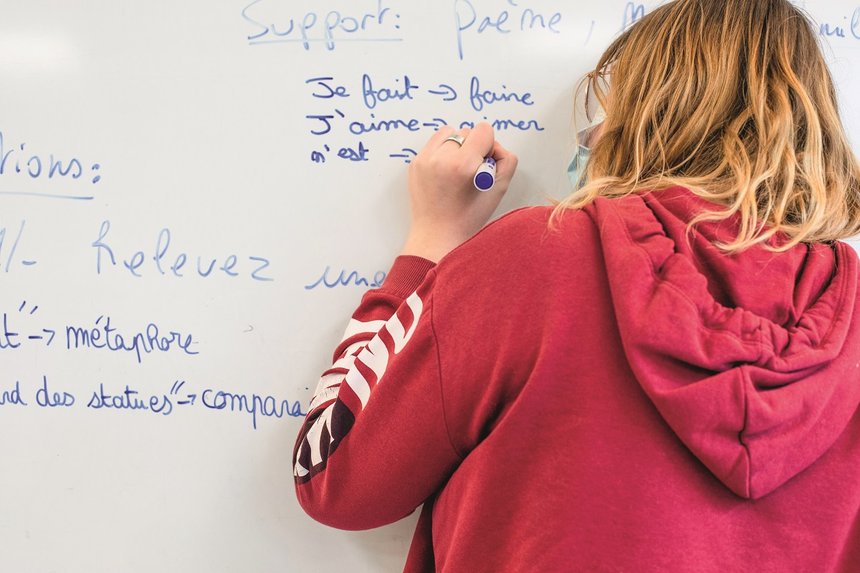 Support: Poème,
Je fait -> faire
J'aime -> aimer
n'est ->
tions:
1/- Relevez une
t" -> métaphore
rd des statues" -> compara